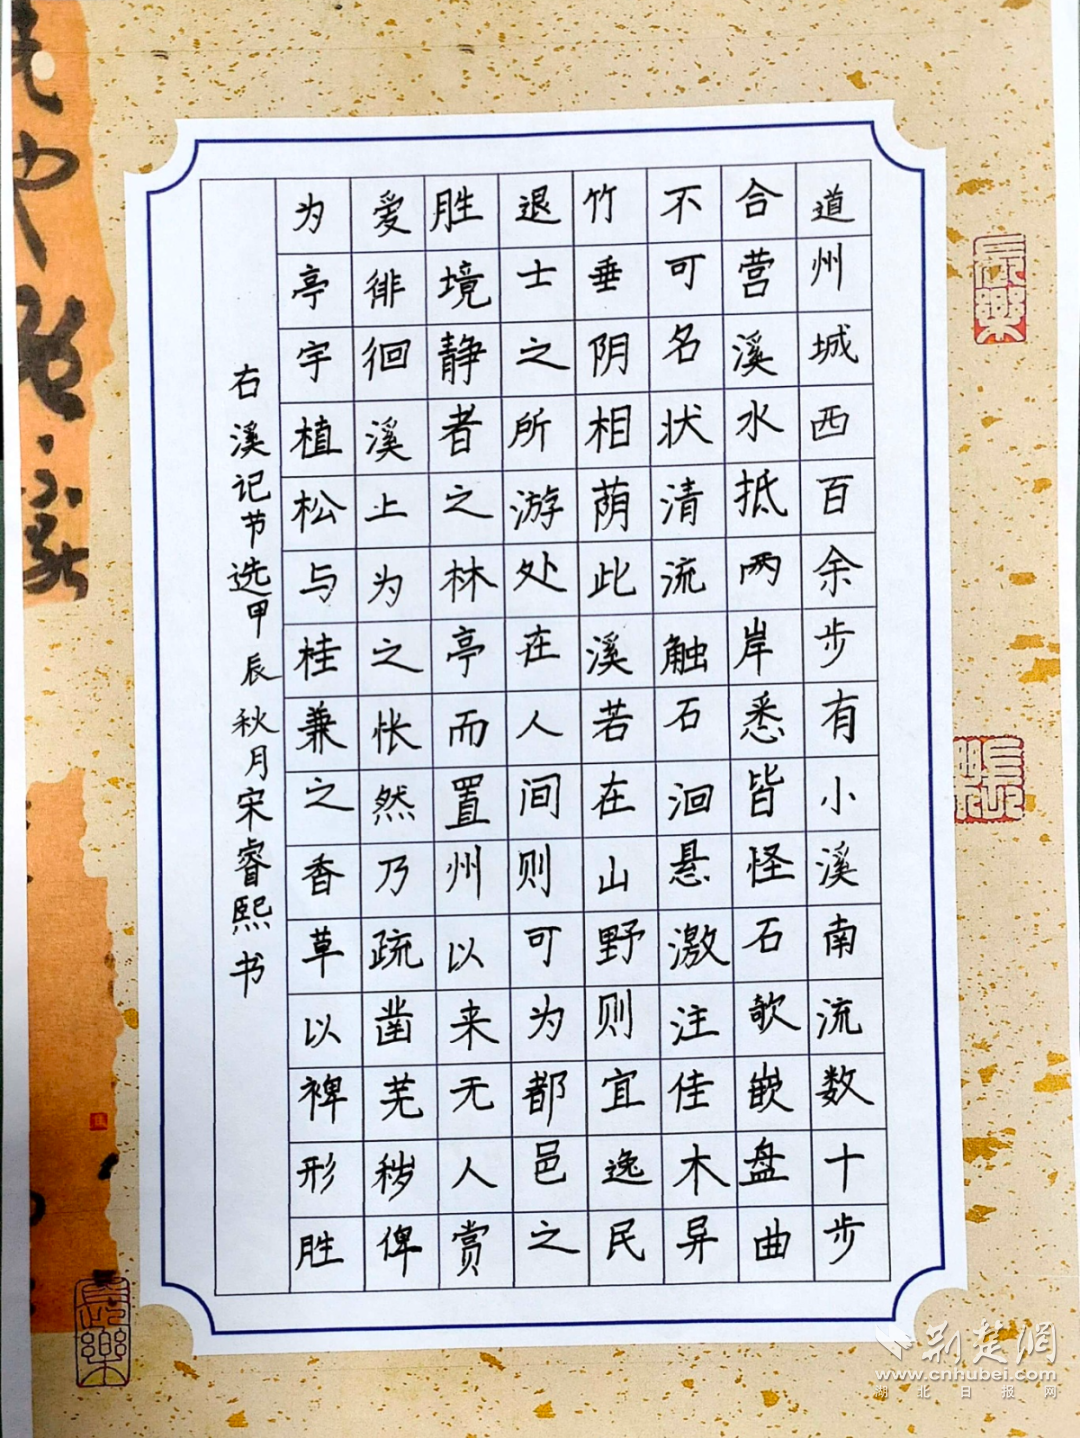 道州城西百余步有小溪南流数十步
合营溪水抵两岸悉皆怪石欹嵌盘曲
不可名状清流触石洄悬激注佳木异
竹垂阴相荫此溪若在山野则宜逸民
退士之所游处在人间则可为都邑之
胜境静者之林亭而置州以来无人赏
爱徘徊溪上为之怅然乃疏凿芜秽俾
为亭宇植松与桂兼之香草以裨形胜
右溪记节选甲辰秋月宋睿熙书
长乐
长乐
荆楚网
www.cnhubei.com
湖北日报网